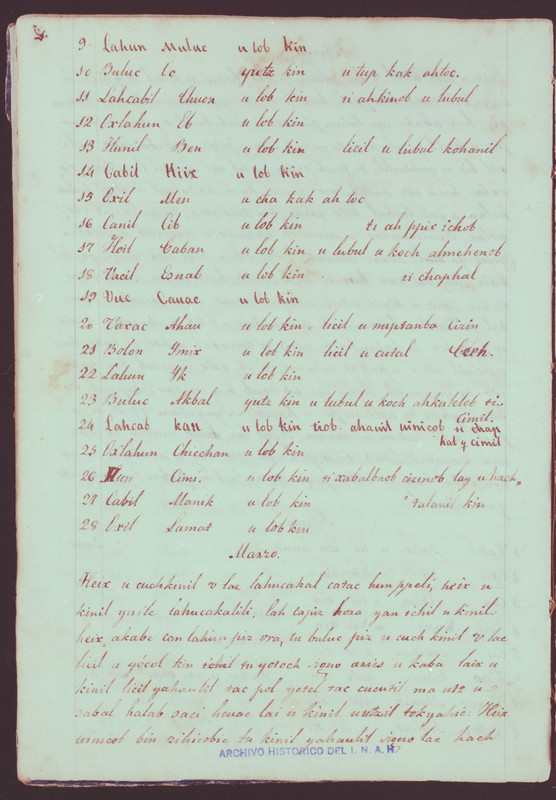 9 Lahun Muluc u lob kin
10 Buluc Oc yutz kin u tup kak ahtoc.
11 Lahcabil Chuen u lob kin ti ahkinob u lubul
12 Oxlahun Eb u lob kin
13 Hunil Ben u lob kin licil u lubul kohanil
14 Cabil Hiix u lob kin
15 Oxil Men u cha kak ah toc
16 Canil Cib u lob kin ti ah ppix ichob
17 Hoil Caban u lob kin u lubul u koch almehenob
18 Vacil Esnab u lob kin ti chaphal
19 Vuc Cauac u lob kin
20 Vaxac Ahau u lob kin licil u Cizin
21 Bolon Ymix u lob kin licil u cutal Ceeh.
22 Lahun Yk u lob kin
23 Buluc Akbal yutz kin u lubul u koch ahkulelob ti
cimil.
24 Lahcab kan u lob kin tiob ahauil uinicob u chap
hal y cimil
25 Oxlahun Chicchan u lob kin
26 Hun Cimi. u lob kin ti xabalbaob cizinob lay u hach
27 Cabil Manik u lob kin talanil kin
28 Oxil Lamat u lob kin
Marzo.
Heix u cuchkinil v lae lahucakal catac hunppeli, heix u
kinil ynile lahucakalili; lah capiz hora yan ichil u kinil
heix akabe can lahun piz ora, tu buluc piz u cuch kinil v lae
licil u yocol kin ichil tu yotoch signo aries u kaba laix u
kinil licil yahaulil tac pol yetel tac cucutil ma utz u
dzabal halab dzaci heuac lai u kinil uutzil tokyahie. Heix
uinicob bin zihicobie tu kinil yahaulil signo lae hach
ARCHIVO HISTORICO DEL I. N. A. H.